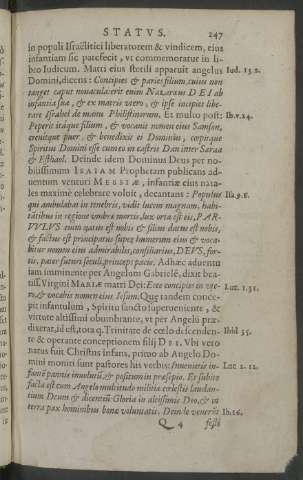 STATVS. 247
in populi Israëlitici liberatorem & vindicem, eius
infantiam sic patefecit, vt commemoratur in li-
bro Iudicum. Matri eius sterili apparuit angelus
Domini, dicens: Concipies & paries filium, cuius non Iud. 13.2.
tanget caput nouacula: erit enim Nazaræus DEI ab
infantia sua, & ex matris vtero, & ipse incipiet libe-
rare Israhel de manu Philistinorum. Et multo post: Ib.v.24.
Peperit itaque filium, & vocauit nomen eius Samson,
creuitque puer, & benedixit ei Dominus, cœpitque
Spiritus Domini esse cum eo in castris Dan inter Saraa
& Esthaol. Deinde idem Dominus Deus per no-
bilissimum ISAIAM Prophetam publicans ad-
uentum venturi MESSIÆ, infantiæ eius nata-
len maximè celebrare voluit, decantans: Populus Isa.9.2.
qui ambulabat in tenebris, vidit lucem magnam, habi-
tantibus in regione vmbræ mortis, lux orta est eis, PAR-
VVLVS enim natus est nobis & filius datus est nobis,
& factus est principatus super humerum eius & voca-
bitur nomen eius admirabilis, consiliarius, DEVS, for-
tis, pater futuri sæculi, princeps pacis. Adhæc aduentu
iam imminente per Angelum Gabrielē, dixit bea-
tiss. Virgini MARIÆ matri Dei: Ecce concipies in vte-
ro, & vocabis nomen eius Iesum. Quę tandem conce- Luc. 1.31.
pit infantulum, Spiritu sancto superueniente, &
virtute altissimi obumbrante, vt per Angelū præ-
dixerat, id est, tota q. Trinitate de cœlo descenden- Ibid 35.
te & operante conceptionem filij DEI. Vbi vero
natus fuit Christus infans, primo ab Angelo Do-
mini moniti sunt pastores his verbis: Inuenietis in- Luc 2.12.
fantē pannis inuolutū & positum in præsepio. Et subito
facta est cum Angelo multitudo militiæ cœlestis laudan-
tium Deum & dicentiū Gloria in altissimis Deo, & in
terra pax hominibus bonæ voluntatis. Dein le venerūt Ib.16.
Q 4 festi